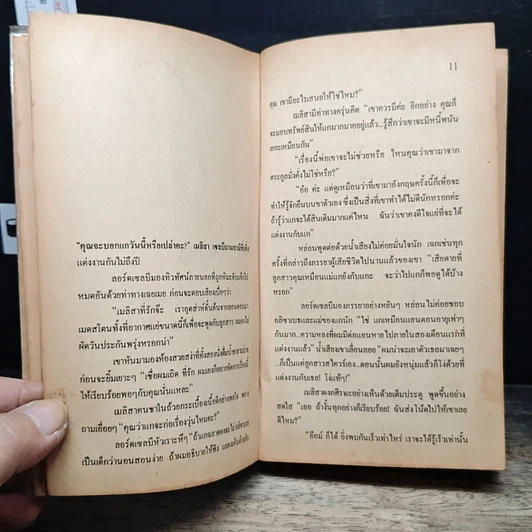 "คุณจะบอกแกวันนี้หรือเปล่าคะ?" เมลิสา
แต่งงานกันไม่ถึงปี
ลอร์ดเซลบีมองทิวทัศน์ภายนอกที่ถูก
หมดอันด้วยท่าทางเฉยเมย ก่อนจะตอบเสียงเบื่อๆว่า
"เมลิสาที่รักจ๊ะ เราอุตส่าห์ดั้นด้นจากลอนดอนมา
เมดสโตนทั้งที่อากาศแย่ขนาดนี้ก็เพื่อจะพูดกับลูกสาว ผมไม่
ผัดวันประกันพรุ่งหรอกน่า"
เขาหันมามองห้องสวยสง่าที่ทั้งสอง
ก่อนจะยิ้มเยาะๆ "เชื่อผมเถิด ที่รัก ผมเองก็อยาก
ให้เรียบร้อยพอๆกับคุณนั่นแหละ"
เมลิสาคนชาในถ้วยกระเบื้องเนื้อดีอย่าง
ถามเอื่อยๆ "คุณว่าแกจะก่อเรื่องวุ่นไหมคะ?"
ลอร์ดเซลบีหัวเราะหึๆ "ถ้าแกฉลาดคงจะไม่
เป็นเด็กว่านอนสอนง่าย ถ้าผมอธิบายให้ฟัง
11
คุณ เขามีอะไรเสนอให้ใช่ไหม?"
เมลิสามีท่าทางครุ่นคิด "เขาควรมีค่ะ อีกอย่าง คุณก็
จะมอบทรัพย์สินให้แกมากมายอยู่แล้ว..รู้สึกว่าเขาจะมีหนี้พนัน
เยอะเหมือนกัน"
"เรื่องนี้พ่อเขาจะไม่ช่วยหรือ ไหนคุณว่าเขามาจาก
ตระกูลมั่งคั่งไม่ใช่หรือ?"
"อ๋อ ค่ะ แต่ดูเหมือนว่าที่เขามาอังกฤษครั้งนี้ก็เพื่อจะ
ทำให้รู้จักยืนบนขาตัวเอง ซึ่งเป็นสิ่งที่เขาทำได้ไม่ดีนักหรอกค่ะ
ถ้ารู้ว่าแกจะได้สินเดิมมากแค่ไหน ฉันว่าเขาคงดีใจแย่ที่จะได้
แต่งงานกับแก"
หล่อนพูดต่อด้วยน้ำเสียงไม่ค่อยมั่นใจนัก เฉกเช่นทุก
ครั้งที่กล่าวถึงภรรยาผู้เสียชีวิตไปนานแล้วของเขา "เสียดายที่
ลูกสาวคุณเหมือนแม่แกยังกับแกะ จะว่าไปแกก็พอดูได้บ้าง
หรอก"
ลอร์ดเซลบีมองภรรยาอย่างหยันๆ หล่อนไม่ค่อยชอบ
อลิซาเบธและแม่ของแกนัก "ใช่ แกเหมือนแอนตอนอายุเท่าๆ
กันมาก..ความหลงที่ผมมีต่อแอนหายไปภายในสองเดือนแรกที่
แต่งงานแล้ว" น้ำเสียงเขาเลื่อนลอย "ผมน่าจะเอาตัวเธอมาเฉยๆ
..ก็เป็นแค่ลูกสาวสไควร์เอง..ตอนนั้นผมยังหนุ่มแล้วก็โง่ด้วยที่
แต่งงานกับเธอ! โง่แท้ๆ!"
เมลิสาผงกศีรษะอย่างเห็นด้วยเต็มประตู พูดขึ้นอย่าง
สดใส "เออ ถ้างั้นทุกอย่างก็เรียบร้อย! ฉันส่งโน้ตไปให้เขาเลย
ดีไหม?"
"อืมม์ ก็ได้ ยิ่งพบกันเร็วเท่าไหร่ เราจะได้รู้เร็วเท่านั้น